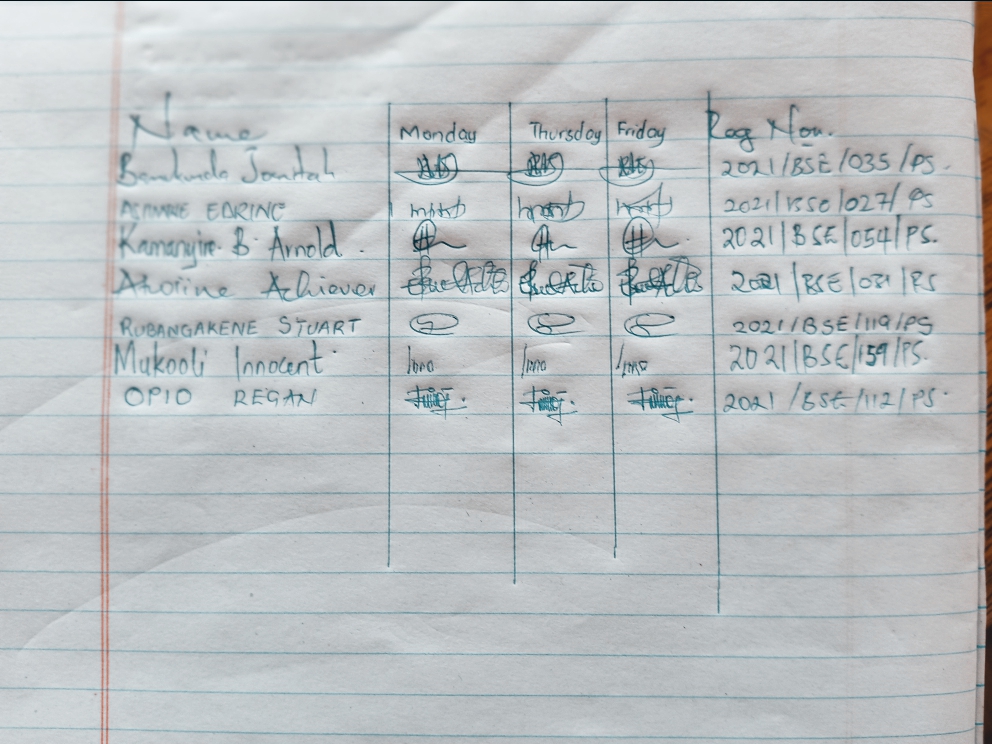 Name Monday Thursday Friday Reg Non.
2021/BSE/035/PS.
EDRINE 2021/BSE/027/PS
Kamanyire B. Arnold. 2021/BSE/054/PS.
Achiever 2021/BSE/031/PS
RUBANGAKENE STUART 2021/BSE/119/PS
Mukooli Innocent Inno Inno Inno 2021/BSE/159/PS.
OPIO REGAN 2021/BSE/112/PS.